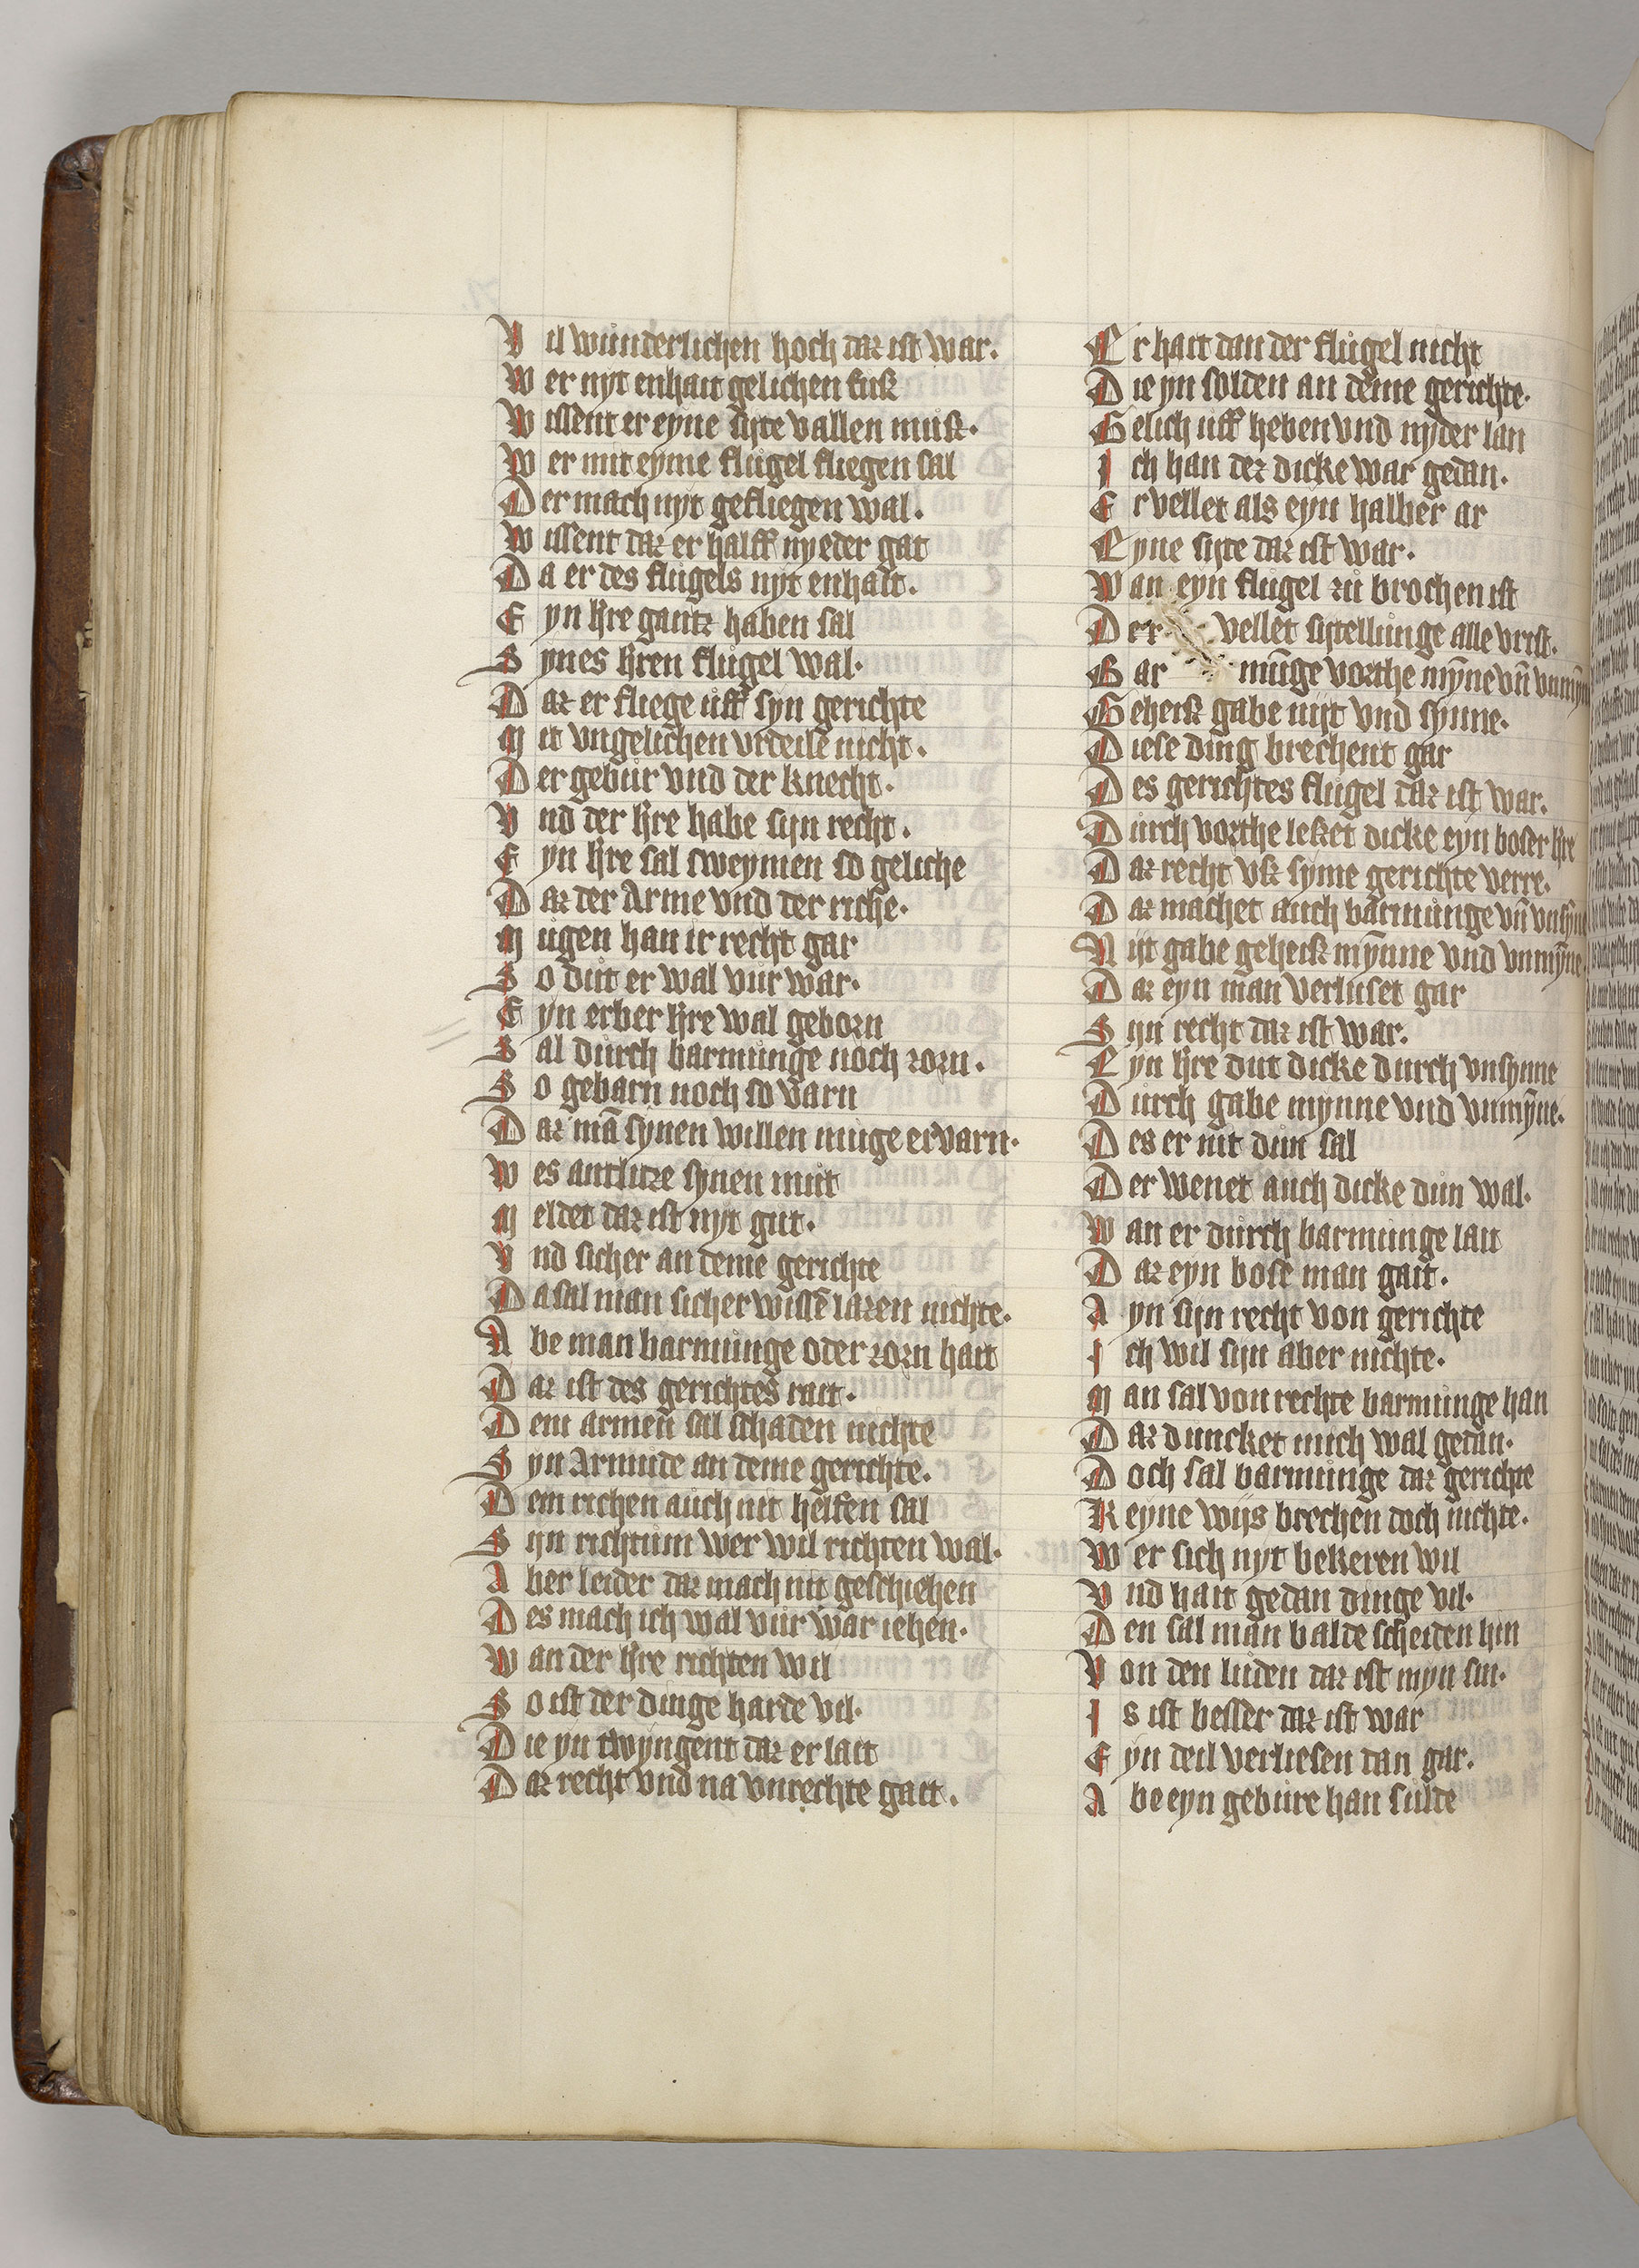 Vil wůnderlichen hoch daz ist war.
Wer nyt enhait gelichen fuß
Wissent er eyne sijte vallen můß.
Wer mit eyme flůgel fliegen sal
Der mach nyt gefliegen wal.
Wissent daz er halff nyeder gat
Da er des flůgels nyt enhait.
Eyn h̓re gantz haben sal
Synes h̓ren flůgel wal.
Daz er fliege ůff syn gerichte
Mit vngelichen vrteile nicht.
Der gebůr vnd der knecht.
Vnd der h̓re habe sijn recht.
Eyn h̓re sal tweymen so geliche
Daz der Arme vnd der riche.
Můgen han ir recht gar
So důt er wal vůr war.
Eyn erber h̓re wal geborn
Sal důrch barmůnge noch zorn.
So gebarn noch so varn
Daz mā synen willen můge ervarn.
Wes antlitze synen můt
Meldet daz ist nyt gůt.
Vnd sicher an deme gerichte
Da sal man sicher wissē lazen nichte.
Abe man barmůnge oder zorn hait
Daz ist des gerichtes rait.
Dem armen sal schaden nichte
Syn Armůde an deme gerichte.
Dem richen auch nit helfen sal
Sijn richtům wer wil richten wal.
Aber leider daz mach nit geschiehen
Des mach ich wal vůr war iehen.
Wan der h̓re richten wil
So ist der dinge harde vil.
Die yn twyngent daz er lait
Daz recht vnd na vnrechte gait.
Er hait dan der flůgel nicht
Die yn solden an deme gerichte.
Gelich ůff heben vnd nyder lan
Ich han dez dicke war gedan.
Er vellet als eyn halber ar
Eyne sijte daz ist war.
Wan eyn flůgel zů brochen ist
Der vellet sijtellůnge alle vrist.
Bar můnge vorthe mȳne vn̄ vnmȳn
Geheiß gabe nijt vnd synne.
Diese ding brechent gar
Des gerichtes flůgel daz ist war.
Důrch vorthe leßet dicke eyn boser h̓re
Daz recht vß syme gerichte verre.
Daz machet auch barmůnge vn̄ vnsȳne
Nijt gabe geheiß mȳnne vnd vnmȳne.
Daz eyn man verlůset gar
Sijn recht daz ist war.
Eyn h̓re dut dicke durch vnsynne
Důrch gabe mynne vnd vnmȳne.
Des er nit důn sal
Der wenet auch dicke důn wal.
Wan er důrch barmůnge lait
Daz eyn bose man gait.
Ayn sijn recht von gerichte
Ich wil sijn aber nichte.
Man sal von rechte barmůnge han
Daz duncket mich wal getan.
Doch sal barmůnge daz gerichte
Keyne wijs brechen doch nichte.
Wer sich nyt bekeren wil
Vnd hait gedan dinge vil.
Den sal man balde scheiden hin
Von den lůden daz ist myn sin.
Is ist besser daz ist war
Eyn deil verliesen dan gar.
Abe eyn gebůre han sůlde